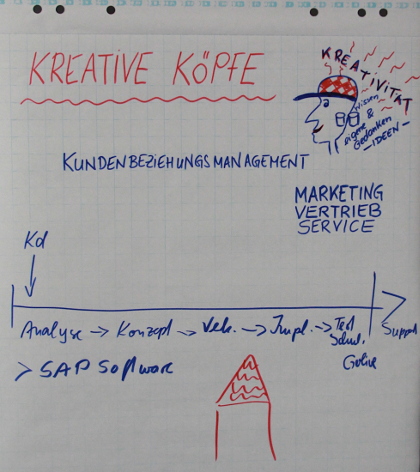 KREATIVE KÖPFE
KREATIVITÄT
Wissen
&
eigene
Gedanken
- IDEEN -
KUNDENBEZIEHUNGSMANAGEMENT
MARKETING
VERTRIEB
SERVICE
Kd
Analyse → Konzept → → Impl. → Test
Schul.
GoLive
Support
> SAP Software